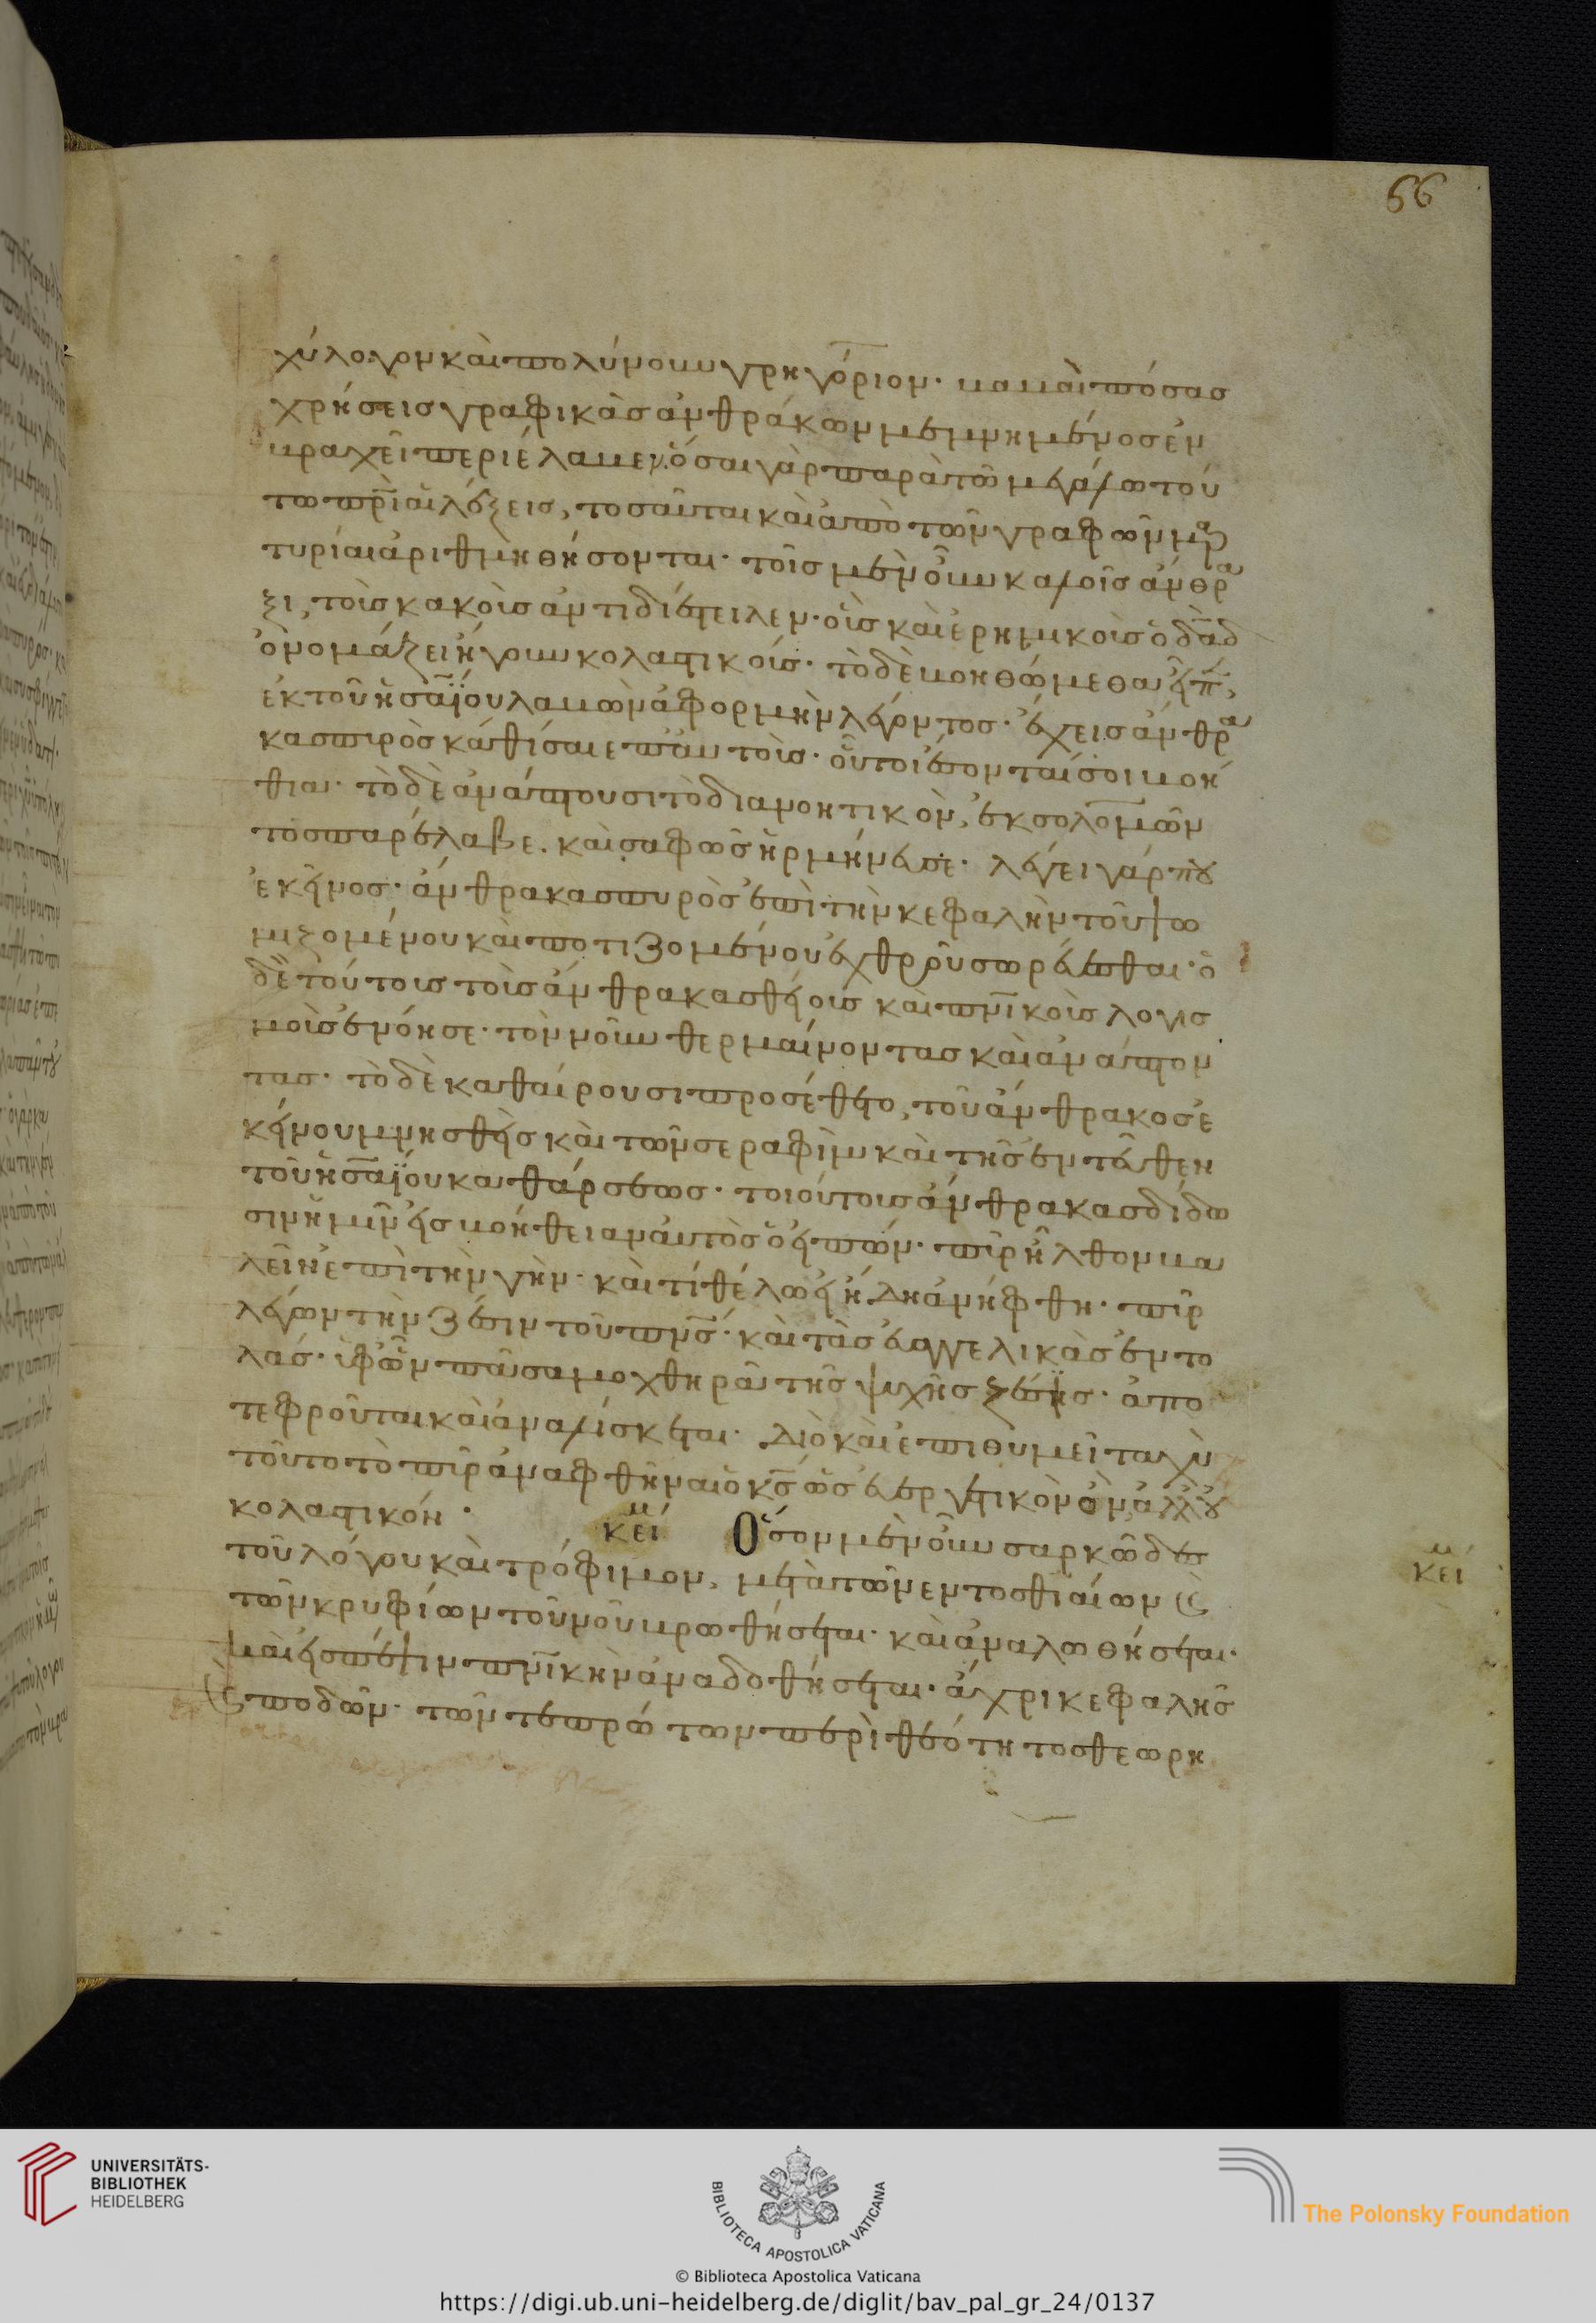 66
χύλογον καὶ πολύνουν γρηγόριον· βαβαὶ πόσας
χρήσεις γραφικὰς ἀνθράκων μεμνημένος ἐν
βραχεῖ περιέλαβεν· ὅσαι γὰρ παρὰ τῶ μεγάλω τού
τω πρὶ αἱ λέξεις, τοσαῦται καὶ ἀπὸ τῶν γραφῶν μαρ
τυρίαι ἀριθμηθήσονται· τοῖς μὲν οὖν καλοῖς ἄνθρα
ξι, τοῖς κακοῖς ἀντιδιέστειλεν· οἷς καὶ ἐρημικοῖς ὁ δαδ
ὀνομάζει ἤγουν κολαστικοῖς· τὸ δὲ βοηθώμεθα εἶπ,
ἐκ τοῦ ἡσαΐου λαβὼν ἀφορμὴν λέγοντος· ἔχεις ἄνθρα
κας πυρὸς κάθισαι ἐπ' αὐτοῖς· οὗτοι ἔσονταί σοι βοή
θια· τὸ δὲ ἀνάπτουσι τὸ διανοητικὸν, ἐκ σολομῶν
τος παρέλαβε. καὶ σαφῶς ἡρμήνευσε· λέγει γάρ που
ἐκεῖνος· ἄνθρακας πυρὸς ἐπὶ τὴν κεφαλὴν τοῦ ψω
μιζομένου καὶ ποτιζομένου ἐχθροῦ σωρεύεσθαι· ὁ
δὲ τούτοις τοῖς ἄνθρακας θείοις καὶ πνικοῖς λογισ
μοῖς ἐνόησε· τὸν νοῦν θερμαίνοντας καὶ ἀνάπτον
τας· τὸ δὲ καθαίρουσι προσέθετο, τοῦ ἄνθρακος ἐ
κείνου μνησθεὶς καὶ τῶν σεραφὶμ καὶ τῆς ἐντεῦθεν
τοῦ ἡσαΐου καθάρσεως· τοιούτοις ἄνθρακας δίδω
σιν ἡμῖν εἰς βοήθειαν αὐτὸς ὁ εἰπών· πῦρ ἦλθον βα
λεῖν ἐπὶ τὴν γὴν· καὶ τί θέλω εἰ ἤδη ἀνήφθη· πῦρ
λέγων τὴν ζέσιν τοῦ πνς· καὶ τὰς εὐαγγελικὰς ἐντο
λάς· ὑφ' ὧν πᾶσα μοχθηρὰ τῆς ψυχῆς ἕξις· ἀπο
τεφροῦται καὶ ἀναλίσκεται· διὸ καὶ ἐπιθυμεῖ ταχὺ
τοῦτο τὸ πῦρ ἀναφθῆναι ὁ κς ὡς εὐεργετικὸν ὂν ἀλλ' οὐ
κολαστικόν· κεί Ὅσον μὲν οὖν σαρκῶδες
κεί
τοῦ λόγου καὶ τρόφιμον, μετὰ τῶν ἐντοσθιαίων καὶ
τῶν κρυφίων τοῦ νοῦ βρωθήσεται· καὶ ἀναλωθήσεται·
καὶ εἰς πέψιν πνικὴν ἀναδοθήσεται· ἄχρι κεφαλῆς
καὶ ποδῶν· τῶν τε πρώτων περὶ θεότητος θεωρη
UNIVERSITÄTS-
BIBLIOTHEK
HEIDELBERG
BIBLIOTECA APOSTOLICA VATICANA
The Polonsky Foundation
© Biblioteca Apostolica Vaticana
https://digi.ub.uni-heidelberg.de/diglit/bav_pal_gr_24/0137